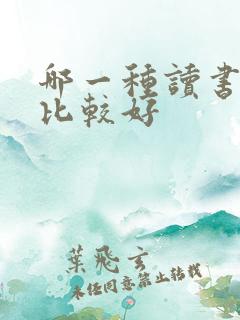 哪一種讀書
比較好
葉飛玄
未經同意禁止轉載